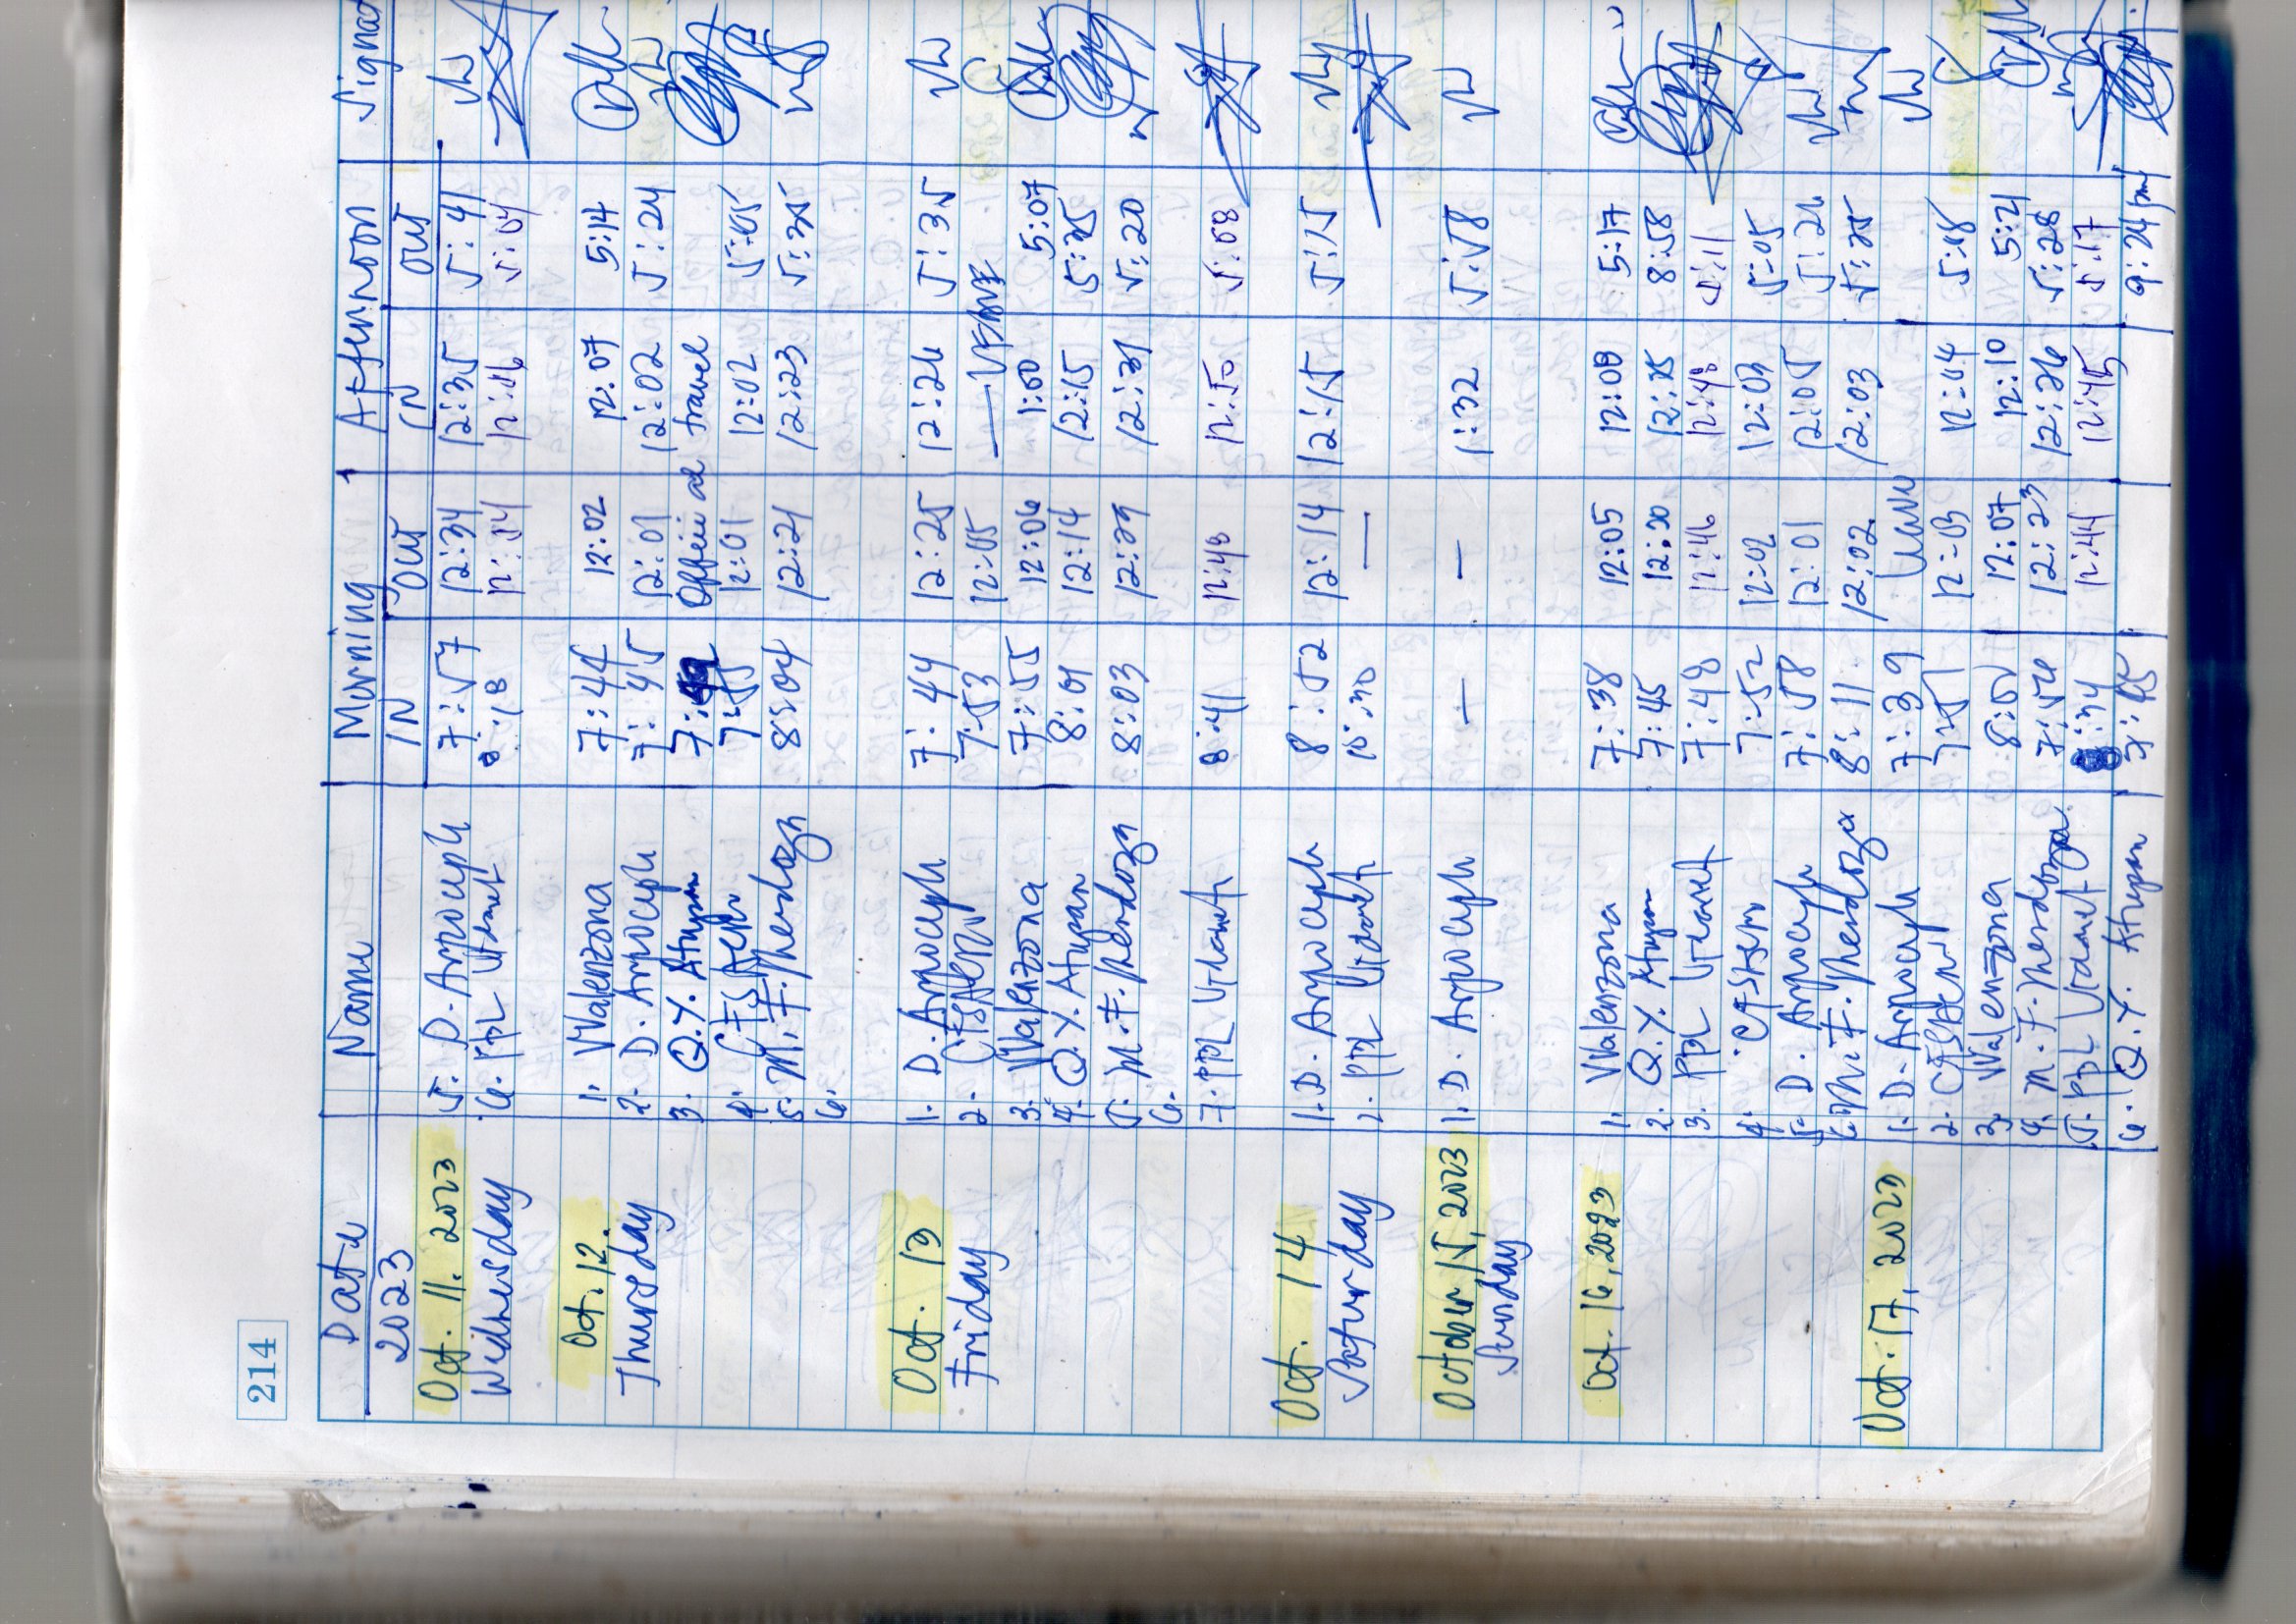 214
Date Name Morning Afternoon Signat
2023 IN OUT IN OUT
Oct. 11. 2023 5. D. Arpocuph 7:57 12:34 12:35 5:41
Wednesday 6. PPL 8:18 12:14 12:16 5:04
Oct. 12. 1. VValenzona 7:44 12:02 12:07 5:14
Thursday 2. D. Arpocuph 7:45 12:01 12:02 5:24
3. Q.Y. Atupan Official travel
4. 12:01 12:02 5:05
5. M. F. Mendoza 8:04 12:21 12:23 5:35
6.
Oct. 13 1. D. Arpocuph 7:44 12:25 12:26 5:35
Friday 2. 7:53 12:05
3. VValenzona 7:55 12:06 1:00 5:07
4. Q.Y. Atupan 8:01 12:14 12:15 5:35
5. M. F. Mendoza 8:03 12:29 12:31 5:20
6.
7. PPL 8:41 12:48 12:50 5:08
Oct. 14 1. D. Arpocuph 8:52 12:14 12:15 5:15
Saturday 2. PPL 10:30 —
October 15, 2023 1. D. Arpocuph — — 1:32 5:58
Sunday
Oct. 16, 2023 1. VValenzona 7:38 12:05 12:09 5:17
2. Q.Y. Atupan 7:45 12:20 12:25 8:58
3. PPL 7:48 12:46 12:48 5:11
4. 7:52 12:02 12:03 5:05
5. D. Arpocuph 7:58 12:01 12:05 5:26
6. M. F. Mendoza 8:11 12:02 12:03 5:25
Oct. 17, 2023 1. D. Arpocuph 7:39
2. 7:51 12:03 12:04 5:18
3. VValenzona 8:01 12:07 12:10 5:21
4. M. F. Mendoza 7:54 12:23 12:26 5:28
5. PPL :34 12:44 12:45 5:17
6. Q.Y. Atupan 7:45 9:24 pm